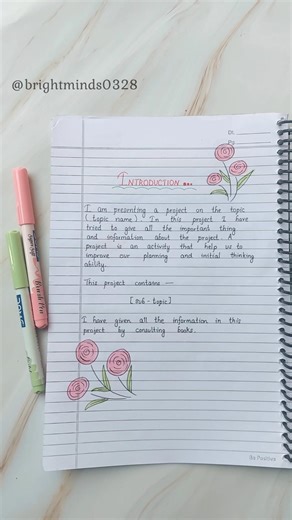 @brightminds0328
Dt.
Pg.
INTRODUCTION...
I am presenting a project on the topic
(topic name). In this project I have
tried to give all the important thing
and information about the project. A
project is an activity that help us to
improve our planning and initial thinking
ability.
This project contains —
[sub-topic]
I have given all the information in this
project by consulting books.
Be Positive
Brush Pen